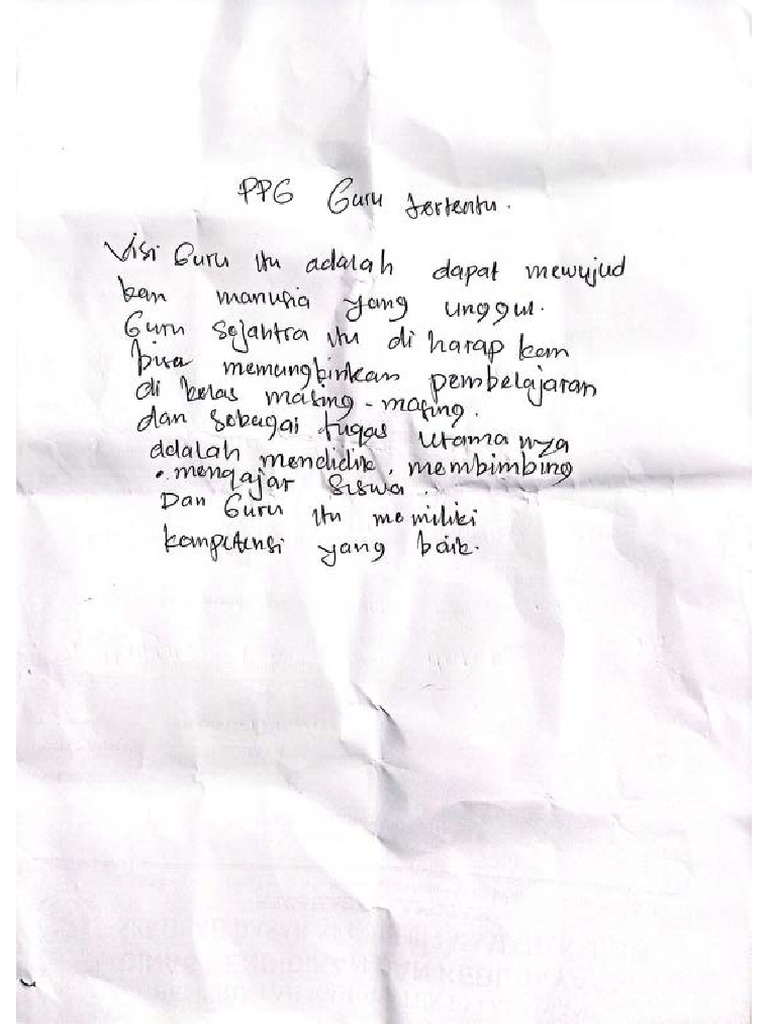 PPG Guru tertentu.
Visi Guru itu adalah dapat mewujud
kan manusia yang unggul.
Guru sejahtra itu di harap kan
bisa memungkinkan pembelajaran
di kelas masing-masing.
dan sebagai tugas utama nya
adalah mendidik, membimbing
mengajar siswa.
Dan Guru itu memiliki
kompetensi yang baik.